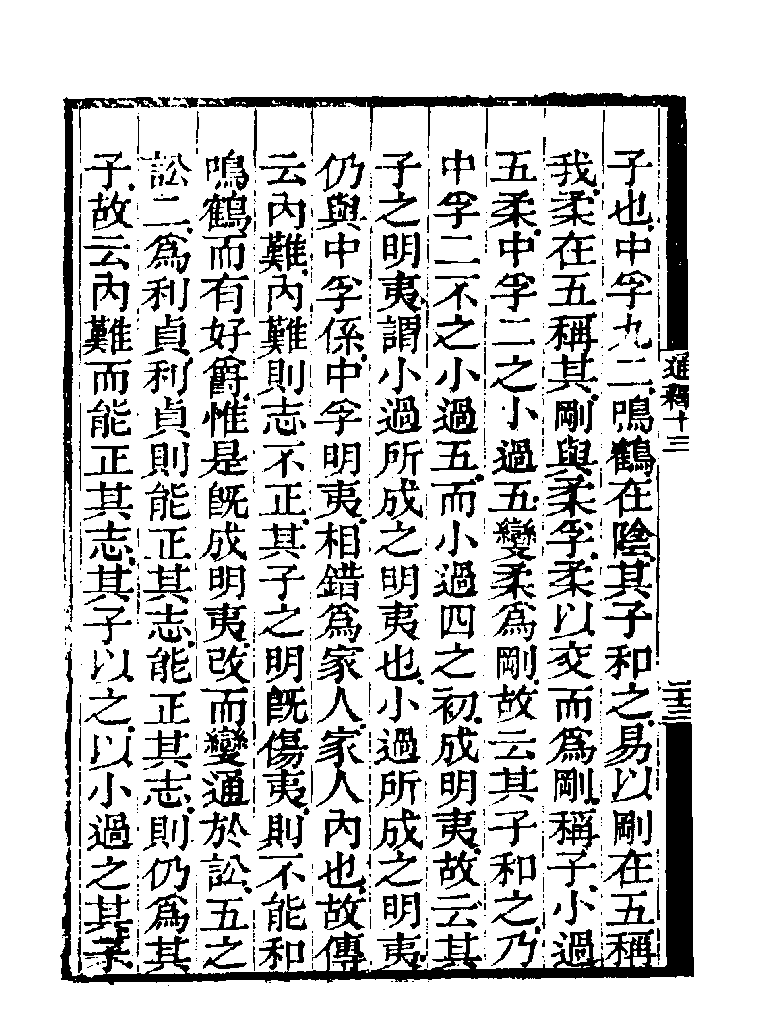 子也中孚九二鳴鶴在陰其子和之易以剛在五稱
我柔在五稱其剛與柔孚柔以交而爲剛稱子小過
五柔中孚二之小過五變柔爲剛故云其子和之乃
中孚二不之小過五而小過四之初成明夷故云其
子之明夷謂小過所成之明夷也小過所成之明夷
仍與中孚係中孚明夷相錯爲家人家人內也故傳
云內難內難則志不正其子之明旣傷夷則不能和
鳴鶴而有好爵惟是旣成明夷改而變通於訟五之
訟二爲利貞利貞則能正其志能正其志則仍爲其
子故云內難而能正其志其子以之以小過之其子
通釋十三